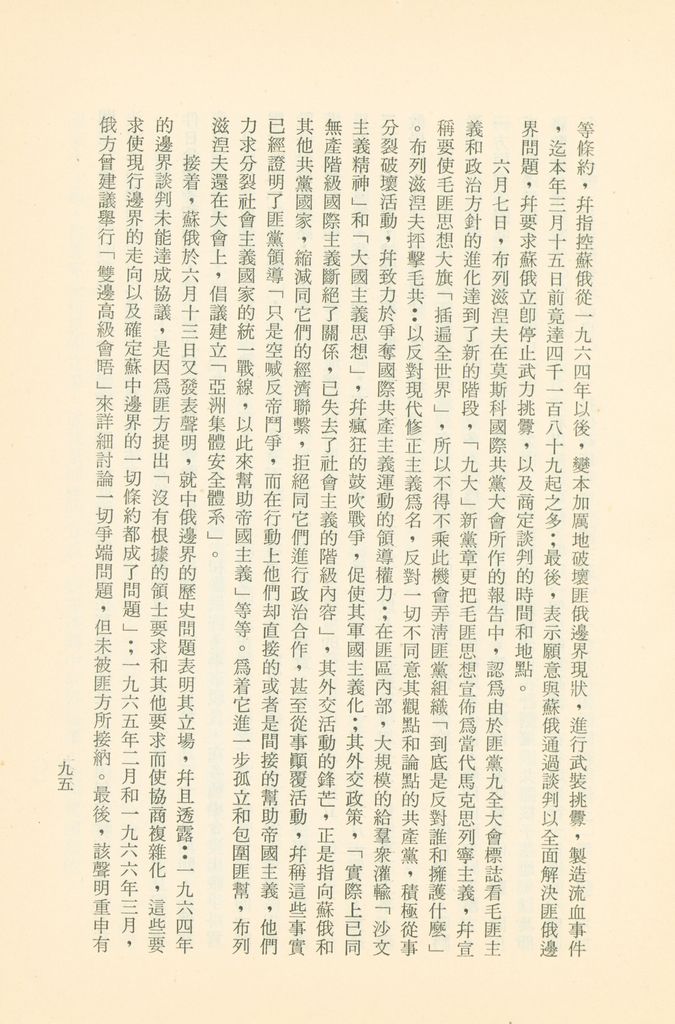 等條約，幷指控蘇俄從一九六四年以後，變本加厲地破壞匪俄邊界現狀，進行武裝挑釁，製造流血事件
，迄本年三月十五日前竟達四千一百八十九起之多；最後，表示願意與蘇俄通過談判以全面解決匪俄邊
界問題，幷要求蘇俄立卽停止武力挑釁，以及商定談判的時間和地點。
六月七日，布列滋涅夫在莫斯科國際共黨大會所作的報告中，認爲由於匪黨九全大會標誌看毛匪主
義和政治方針的進化達到了新的階段，「九大」新黨章更把毛匪思想宣佈爲當代馬克思列寧主義，幷宣
稱要使毛匪思想大旗「插遍全世界」，所以不得不乘此機會弄淸匪黨組織「到底是反對誰和擁護什麼」
。布列滋涅夫抨擊毛共：以反對現代修正主義爲名，反對一切不同意其觀點和論點的共產黨，積極從事
分裂破壞活動，幷致力於爭奪國際共產主義運動的領導權力；在匪區內部，大規模的給羣衆灌輸「沙文
主義精神」和「大國主義思想」，幷瘋狂的鼓吹戰爭，促使其軍國主義化；其外交政策，「實際上已同
無產階級國際主義斷絕了關係，已失去了社會主義的階級內容」，其外交活動的鋒芒，正是指向蘇俄和
其他共黨國家，縮減同它們的經濟聯繫，拒絕同它們進行政治合作，甚至從事顚覆活動，幷稱這些事實
已經證明了匪黨領導「只是空喊反帝鬥爭，而在行動上他們却直接的或者是間接的幫助帝國主義，他們
力求分裂社會主義國家的統一戰線，以此來幫助帝國主義」等等。爲着它進一步孤立和包圍匪幫，布列
滋涅夫還在大會上，倡議建立「亞洲集體安全體系」。
接着，蘇俄於六月十三日又發表聲明，就中俄邊界的歷史問題表明其立場，幷且透露：一九六四年
的邊界談判未能達成協議，是因爲匪方提出「沒有根據的領土要求和其他要求而使協商複雜化，這些要
求使現行邊界的走向以及確定蘇中邊界的一切條約都成了問題」；一九六五年二月和一九六六年三月，
俄方曾建議舉行「雙邊高級會晤」來詳細討論一切爭端問題，但未被匪方所接納。最後，該聲明重申有
九五